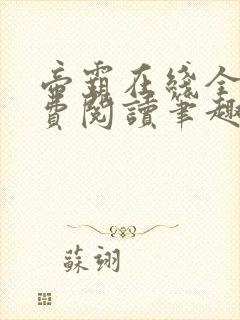 帝霸在綫全
費閱讀筆趣
蘇翊